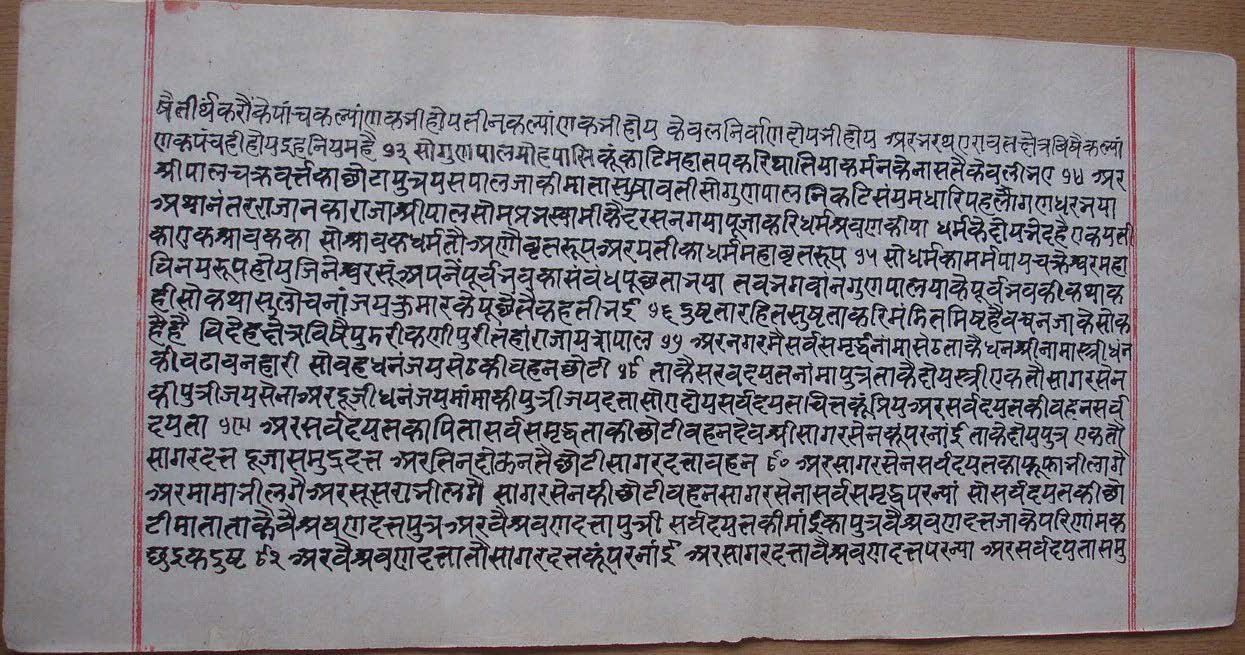 षैतीर्थकरौंकेपांचकल्यांणकभीहोयतीनकल्यांणकभीहोय केवलनिर्वाणदोयभीहोय अरभरथएरावतक्षेत्रविषैकल्यां
णकपंचहीहोयइहनियमहै ७३ सोगुणपालमोहपासिकूंकाटिमहातपकरिघातियाकर्मनकेनासतैकेवलीभए ७४ अर
श्रीपालचक्रवर्त्तकाछोटापुत्रवसपालजाकीमातासुषावतीसोगुणपालनिकटिसंयमधारिपहलैागणधरभया
अथानंतरराजानकाराजाश्रीपालसोमप्रभस्वामीकैदरसनगयापूजाकरिधर्मश्रवणकीया धर्मकेदोयभेदहैएकयती
काएकश्रावकका सोश्रावकधर्मतौअणौवृतरूपअरयतीकाधर्ममहावृतरूप ७५ सोधर्मकामर्मपायचक्रेश्वरमहा
विनयरूपहोयजिनेश्वरसूंअपनेंपूर्वभवकासंवंधपूछताभया तवभगवांनगुणपालयाकैपूर्वभवकीकथाक
हीसोकथासुलोचनांजयकुमारकैपूछैतैकहतीभई ७६ दुषतारहितसुषताकरिमंडितमिष्टहैवचनजाकेसोक
हैहै विदेहक्षेत्रविषैपुडरीकणीपुरीतहांराजायसपाल ७७ अरनगरमैसर्वसमृद्धनांमासेठताकैधनश्रीनामास्त्रीधन
कीवटावनहारी सोवहधनंजयसेठकीवहनछोटी ७८ ताकैसरवदयतनांमापुत्रताकैदोयस्त्रीएकतौसागरसेन
कीपुत्रीजयसेनांअरदूजीधनंजयमांमाकीपुत्रीजयदत्तासोएदोयसर्वदयतचितकूंप्रियअरसर्वदयतकीवहनसर्व
दयता ७९ अरसर्वदयतकापितासर्वसमृद्धताकीछोटीवहनदेवश्रीसागरसेनकूंपरनांई ताकेदोयपुत्र एकतौ
सागरदत्त दूजासमुद्रदत्त अरतिनदोऊनतैछोटीसागरदत्तावहन ८० अरसागरसेनसर्वदयतकाफूफाभीलागै
अरमामाभीलगैअरसूसराभीलगै सागरसेनकीछोटीवहनसागरसेनासर्वसमृद्धपरन्यां सोसर्वदयतकीछो
टीमाताताकैवैश्रवणदत्तपुत्रअरवैश्रवणदत्तापुत्री सर्वदयतकीमांईकापुत्रवैश्रवणदत्तजाकैपरिणामक
छुइकदुष्ट ८१ अरवैश्रवणदत्तातौसागरदत्तकूंपरनांई अरसागरदत्तावैश्रवणदत्तपरन्या अरसर्वदयतासमु